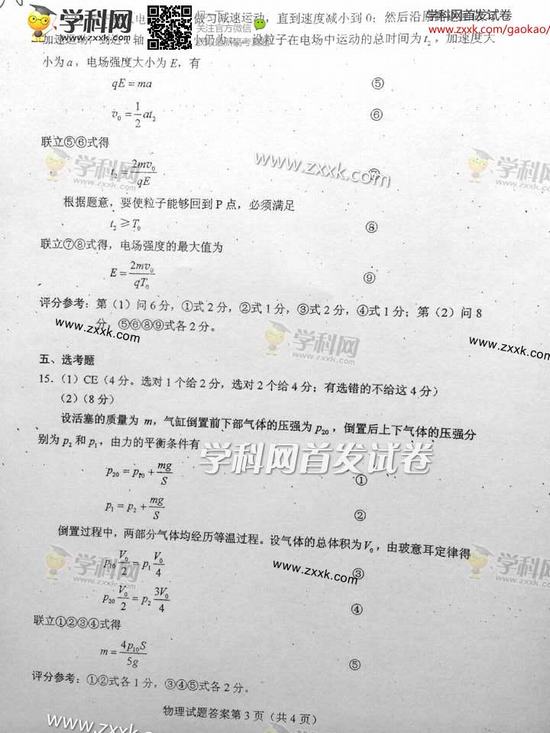 学科网
www.zxxk.com
学科网首发试卷
www.zxxk.com/gaokao/
关注官方微信
做匀减速运动，直到速度减小到0；然后沿
设粒子在电场中运动的总时间为t₂，加速度大
小为a，电场强度大小为E，有
qE = ma ⑤
v₀ = 1/2 at₂ ⑥
联立⑤⑥式得
t₂ = 2mv₀/qE
学科网
www.zxxk.com
学科网
根据题意，要使粒子能够回到P点，必须满足
t₂ ≥ T₀ ⑧
联立⑦⑧式得，电场强度的最大值为
E = 2mv₀/qT₀ ⑨
评分参考：第（1）问6分，①式2分，②式1分，③式2分，④式1分；第（2）问8
分，⑤⑥⑧⑨式各2分。
www.zxxk.com
学科网
www.zxxk.com
五、选考题
15．（1）CE（4分。选对1个给2分，选对2个给4分；有选错的不给这4分）
（2）（8分）
设活塞的质量为 m，气缸倒置前下部气体的压强为p₂₀，倒置后上下气体的压强分
别为p₂和p₁，由力的平衡条件有
学科网首发试卷
p₂₀ = p₁₀ + mg/S ①
p₁ = p₂ + mg/S ②
倒置过程中，两部分气体均经历等温过程。设气体的总体积为V₀，由玻意耳定律得
学科网
p₁₀ V₀/2 = p₁ V₀/4 ③
www.zxxk.com
学科网
p₂₀ V₀/2 = p₂ 3V₀/4 ④
联立①②③④式得
m = 4p₁₀S/5g ⑤
评分参考：①②式各1分，③④⑤式各2分。
物理试题答案第3页（共4页）
www.zxxk.com
学科网
www.zxxk.com